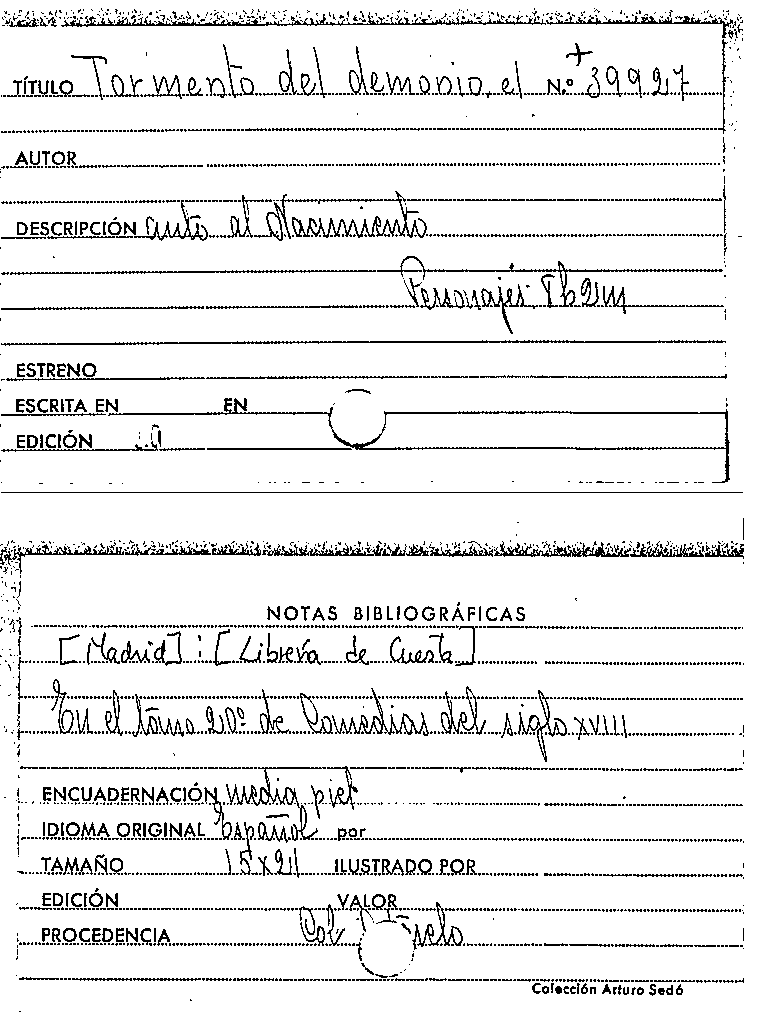 TÍTULO Tormento del demonio, el N.º + 39927
AUTOR
DESCRIPCIÓN auto al Nacimiento
Personajes:
ESTRENO
ESCRITA EN EN
EDICIÓN
NOTAS BIBLIOGRÁFICAS
[Madrid] : [Librería de Cuesta]
En el tomo 20º de Comedias del siglo XVIII
ENCUADERNACIÓN media piel
IDIOMA ORIGINAL Español por
TAMAÑO 15x21 ILUSTRADO POR
EDICIÓN VALOR
PROCEDENCIA Col
Colección Arturo Sedó